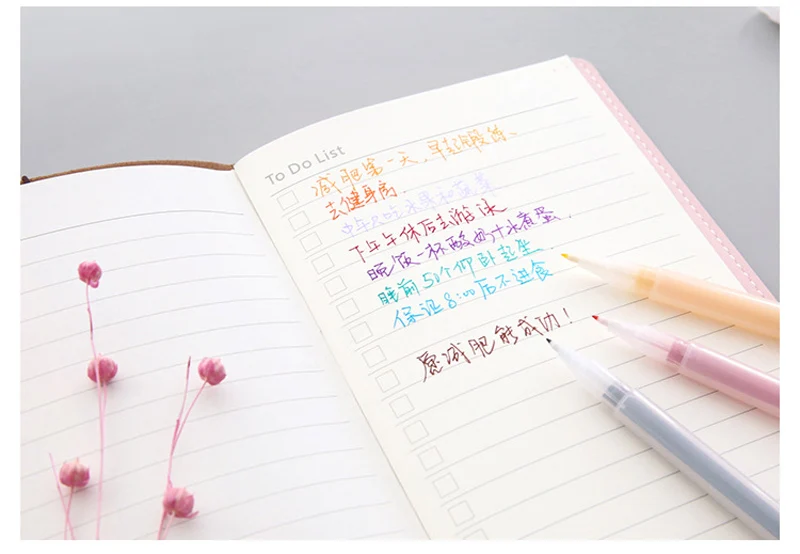 To Do List
减肥第一天，早起
去健身房.
中午只吃水果和
下午午休后去游泳
晚饭一杯酸奶+水煮蛋.
睡前50个仰卧起坐
保证8:00后不进食
愿减肥能成功！